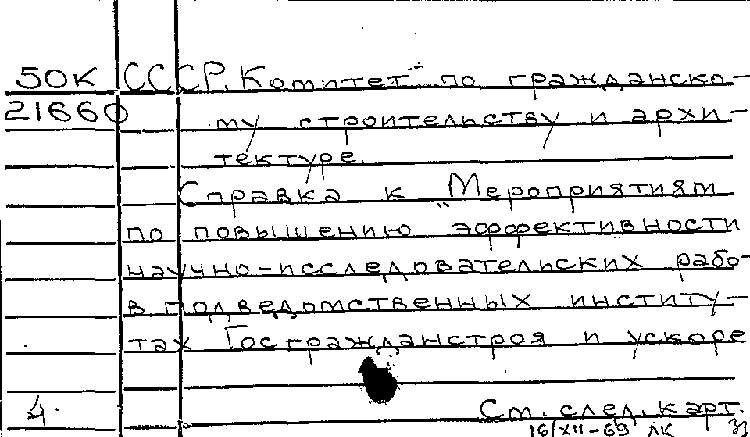 50К СССР. Комитет по гражданско-
21660 му строительству и архи-
тектуре.
Справка к „Мероприятиям
по повышению эффективности
научно-исследовательских рабо-
в подведомственных институ-
тах Госгражданстроя и ускоре
4. См. след. карт.
16/XII-69 ЛК